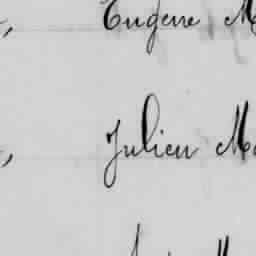 , Eugene M
, Julien Ma